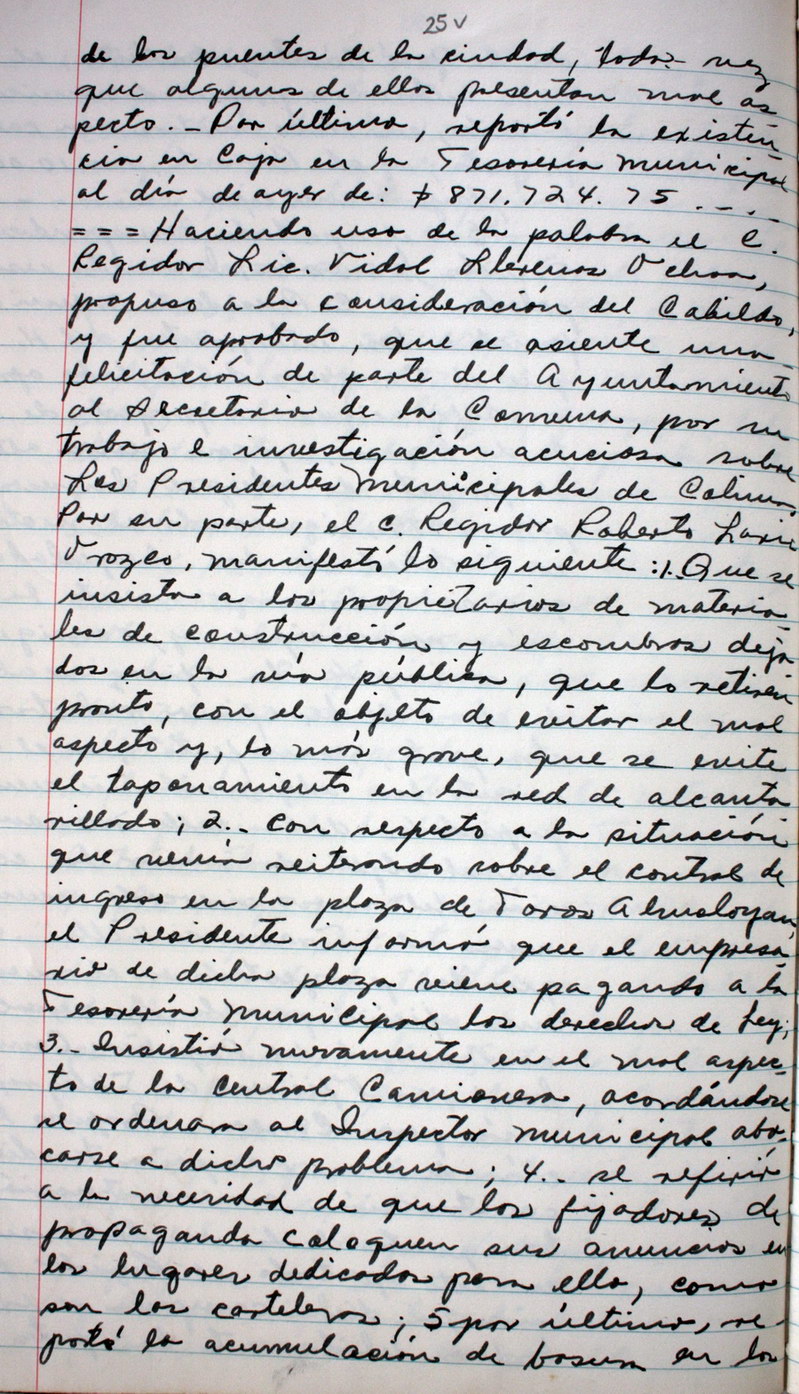 25 v
de los puentes de la ciudad, toda- vez
que algunos de ellos presentan mal as
pecto. - Por último, reportó la existen
cia en Caja en la Tesorería Municipal
al día de ayer de: $ 871.724.75 - - . -
= = = Haciendo uso de la palabra el C.
Regidor Lic. Vidal Llerenas Ochoa,
propuso a la consideración del Cabildo,
y fue aprobado, que se asiente una
felicitación de parte del Ayuntamiento
al Secretario de la Comuna, por su
trabajo e investigación acuciosa sobre
Los Presidentes Municipales de Colima.
Por su parte, el C. Regidor Roberto Laris
Orozco, manifestó lo siguiente: 1.. Que se
insista a los propietarios de materia-
les de construcción y escombros deja
dos en la vía pública, que lo retiren
pronto, con el objeto de evitar el mal
aspecto y, lo más grave, que se evite
el taponamiento en la red de alcanta
rillado; 2.. Con respecto a la situación
que venía reiterando sobre el control de
ingreso en la plaza de Toros Almoloyan,
el Presidente informó que el empresa
rio de dicha plaza viene pagando a la
Tesorería Municipal los derechos de Ley;
3.. Insistió nuevamente en el mal aspec-
to de la Central Camionera, acordándose
se ordenara al Inspector Municipal abo-
carse a dicho problema; 4.. se refirió
a la necesidad de que los fijadores de
propaganda coloquen sus anuncios en
los lugares dedicados para ello, como
son las carteleras; 5 por último, re-
portó la acumulación de basura en los